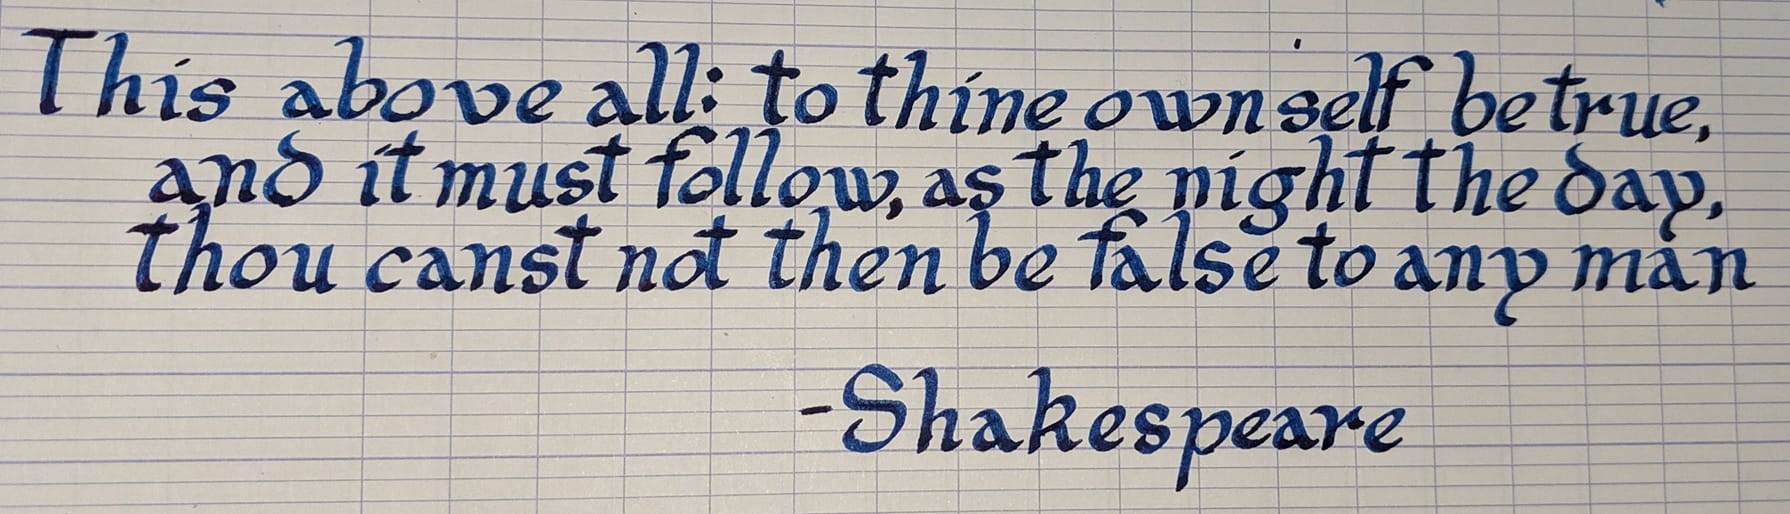 This above all: to thine own self be true,
and it must follow, as the night the day,
thou canst not then be false to any man
-Shakespeare